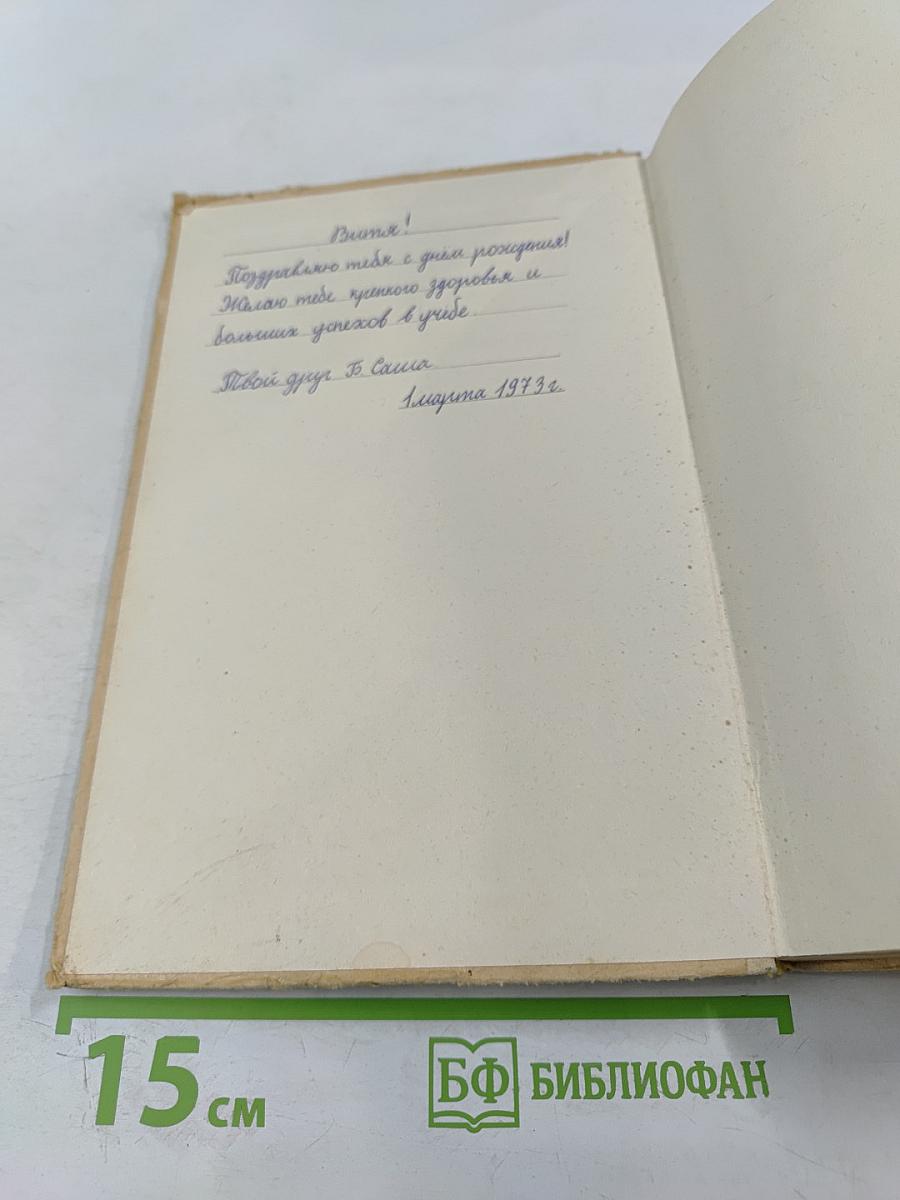 Витя!
Поздравляю тебя с днём рождения!
Желаю тебе крепкого здоровья и
больших успехов в учёбе.
Твой друг Б. Саша
1 марта 1973 г.
15 см
БФ БИБЛИОФАН